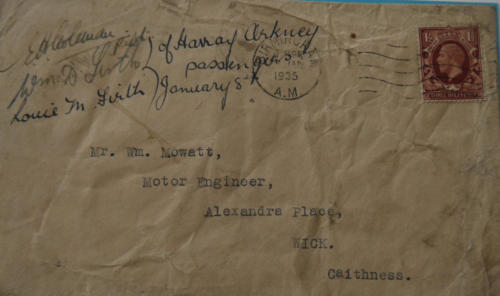 Wm D. Firth
Louie M. Firth
of Harray Orkney
passengers
January 8th
1935
A.M
Mr. Wm. Mowatt,
Motor Engineer,
Alexandra Place,
WICK.
Caithness.